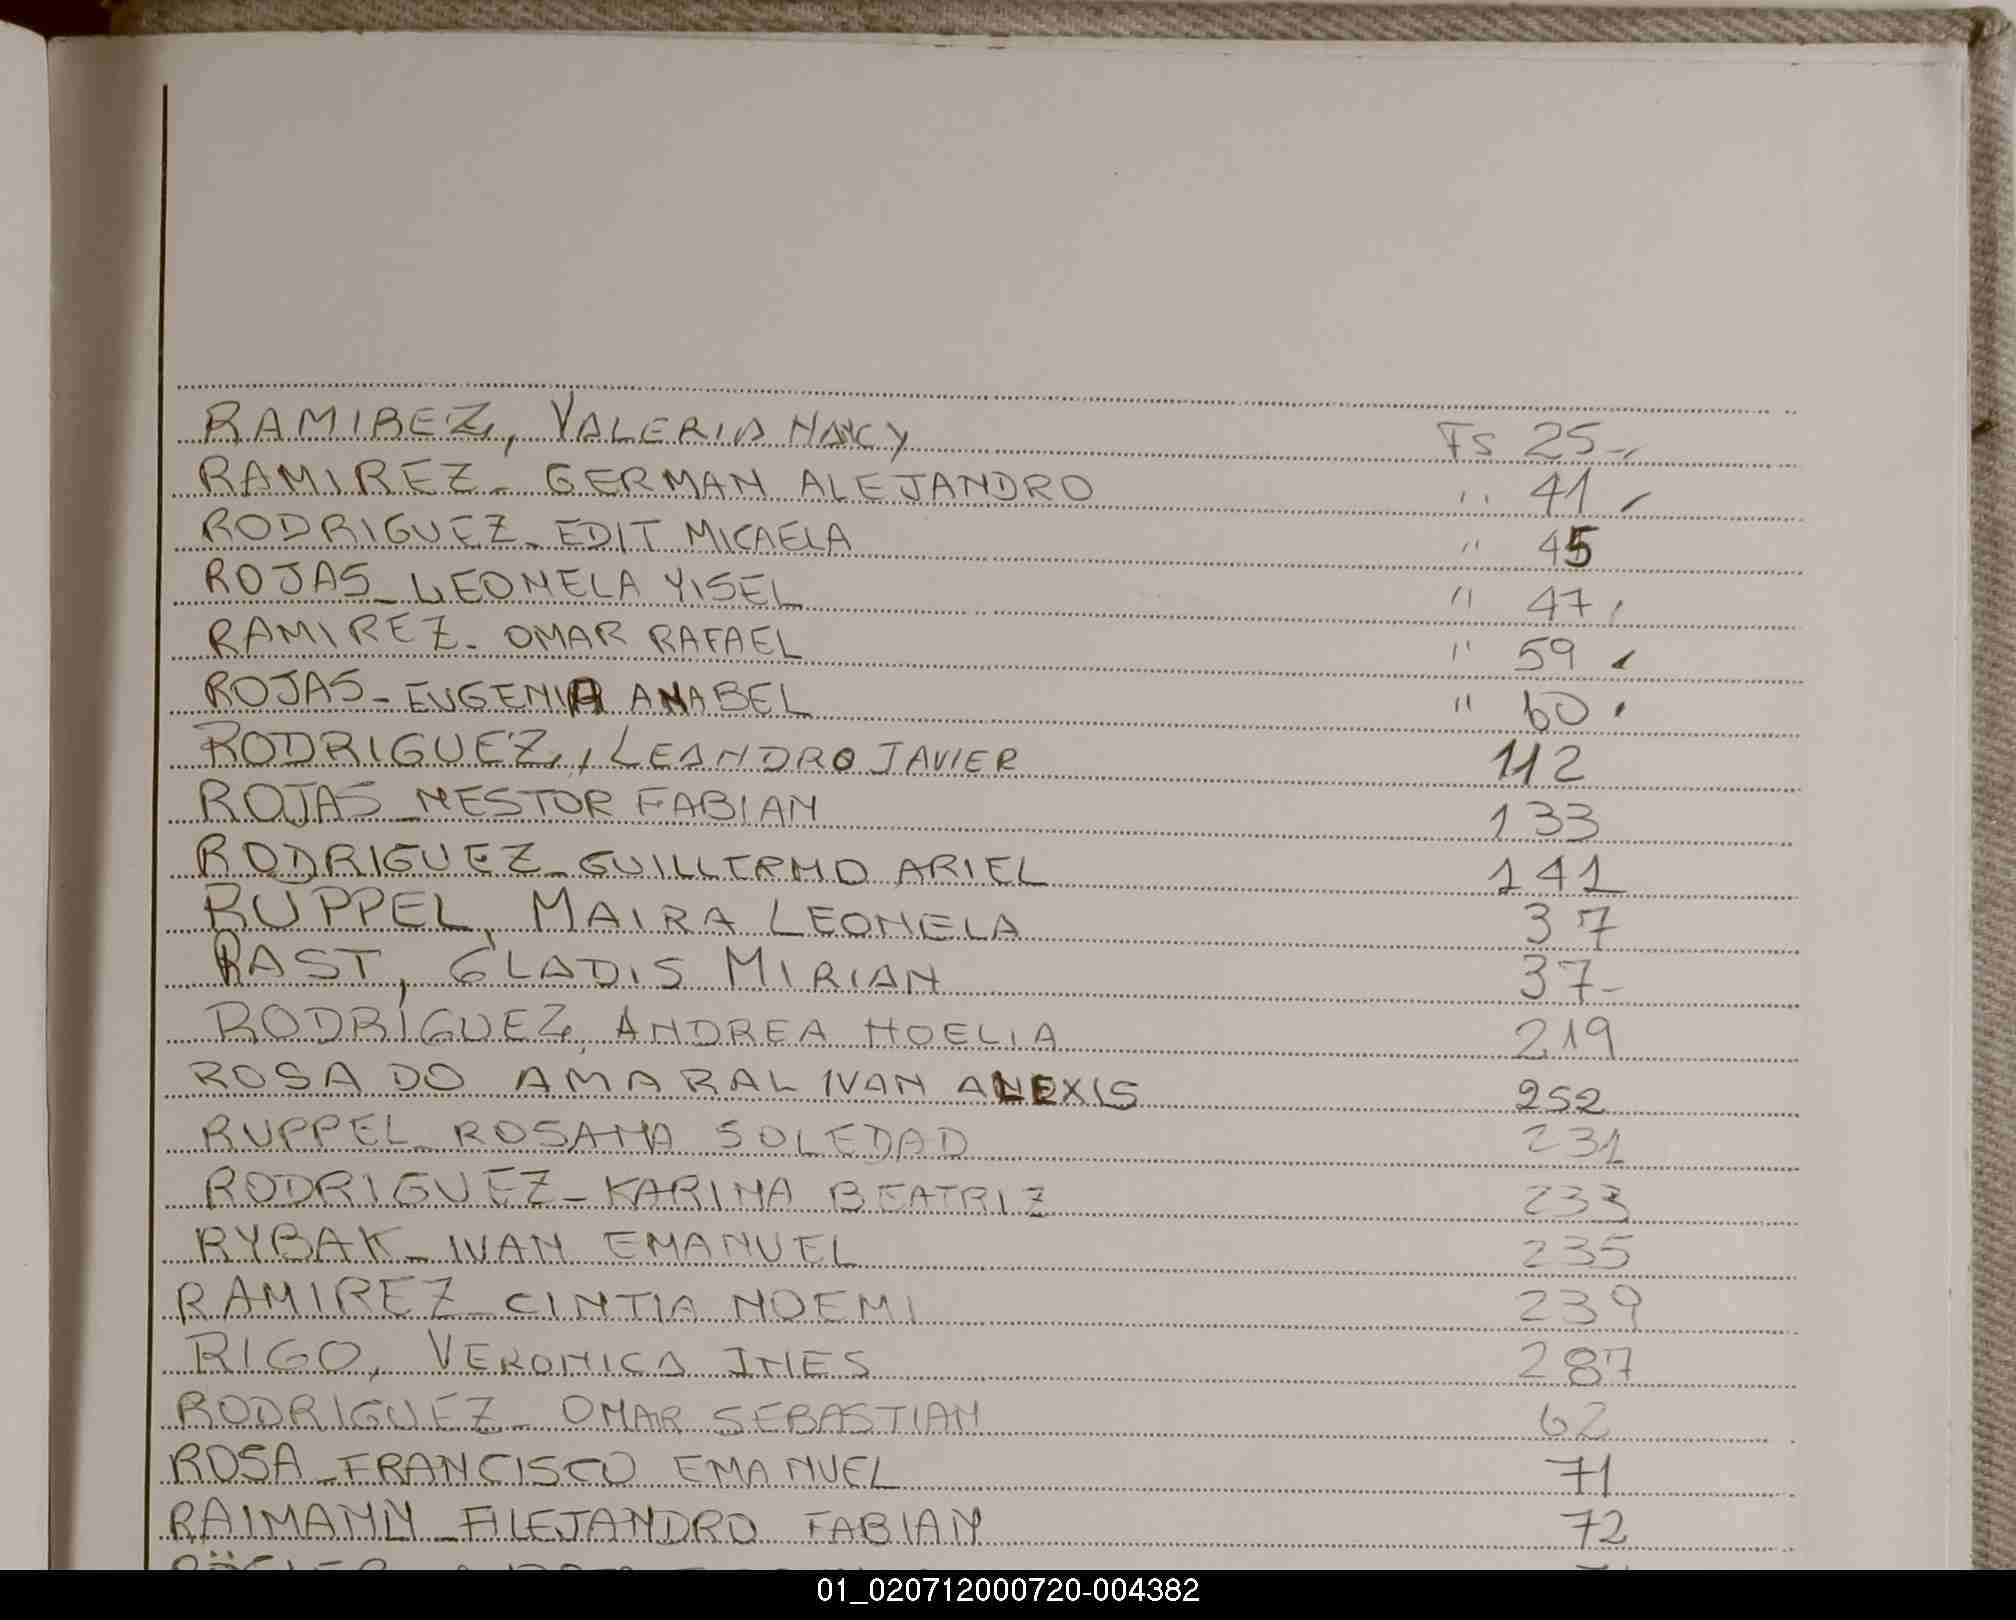 RAMIREZ, VALERIA NANCY Fs 25-,
RAMIREZ- GERMAN ALEJANDRO " 41
RODRIGUEZ- EDIT MICAELA " 45
ROJAS- LEONELA YISEL " 47
RAMIREZ- OMAR RAFAEL " 59
ROJAS- EUGENIA ANABEL " 60
RODRIGUEZ, LEANDRO JAVIER 112
ROJAS- NESTOR FABIAN 133
RODRIGUEZ- GUILLERMO ARIEL 141
RUPPEL, MAIRA LEONELA 37
RAST, GLADIS MIRIAN 37-
RODRIGUEZ, ANDREA NOELIA 219
ROSA DO AMARAL IVAN ALEXIS 252
RUPPEL- ROSANA SOLEDAD 231
RODRIGUEZ- KARINA BEATRIZ 233
RYBAK- IVAN EMANUEL 235
RAMIREZ- CINTIA NOEMI 239
RIGO, VERONICA INES 287
RODRIGUEZ- OMAR SEBASTIAN 62
ROSA- FRANCISCO EMANUEL 71
RAIMANN- ALEJANDRO FABIAN 72
01_020712000720-004382